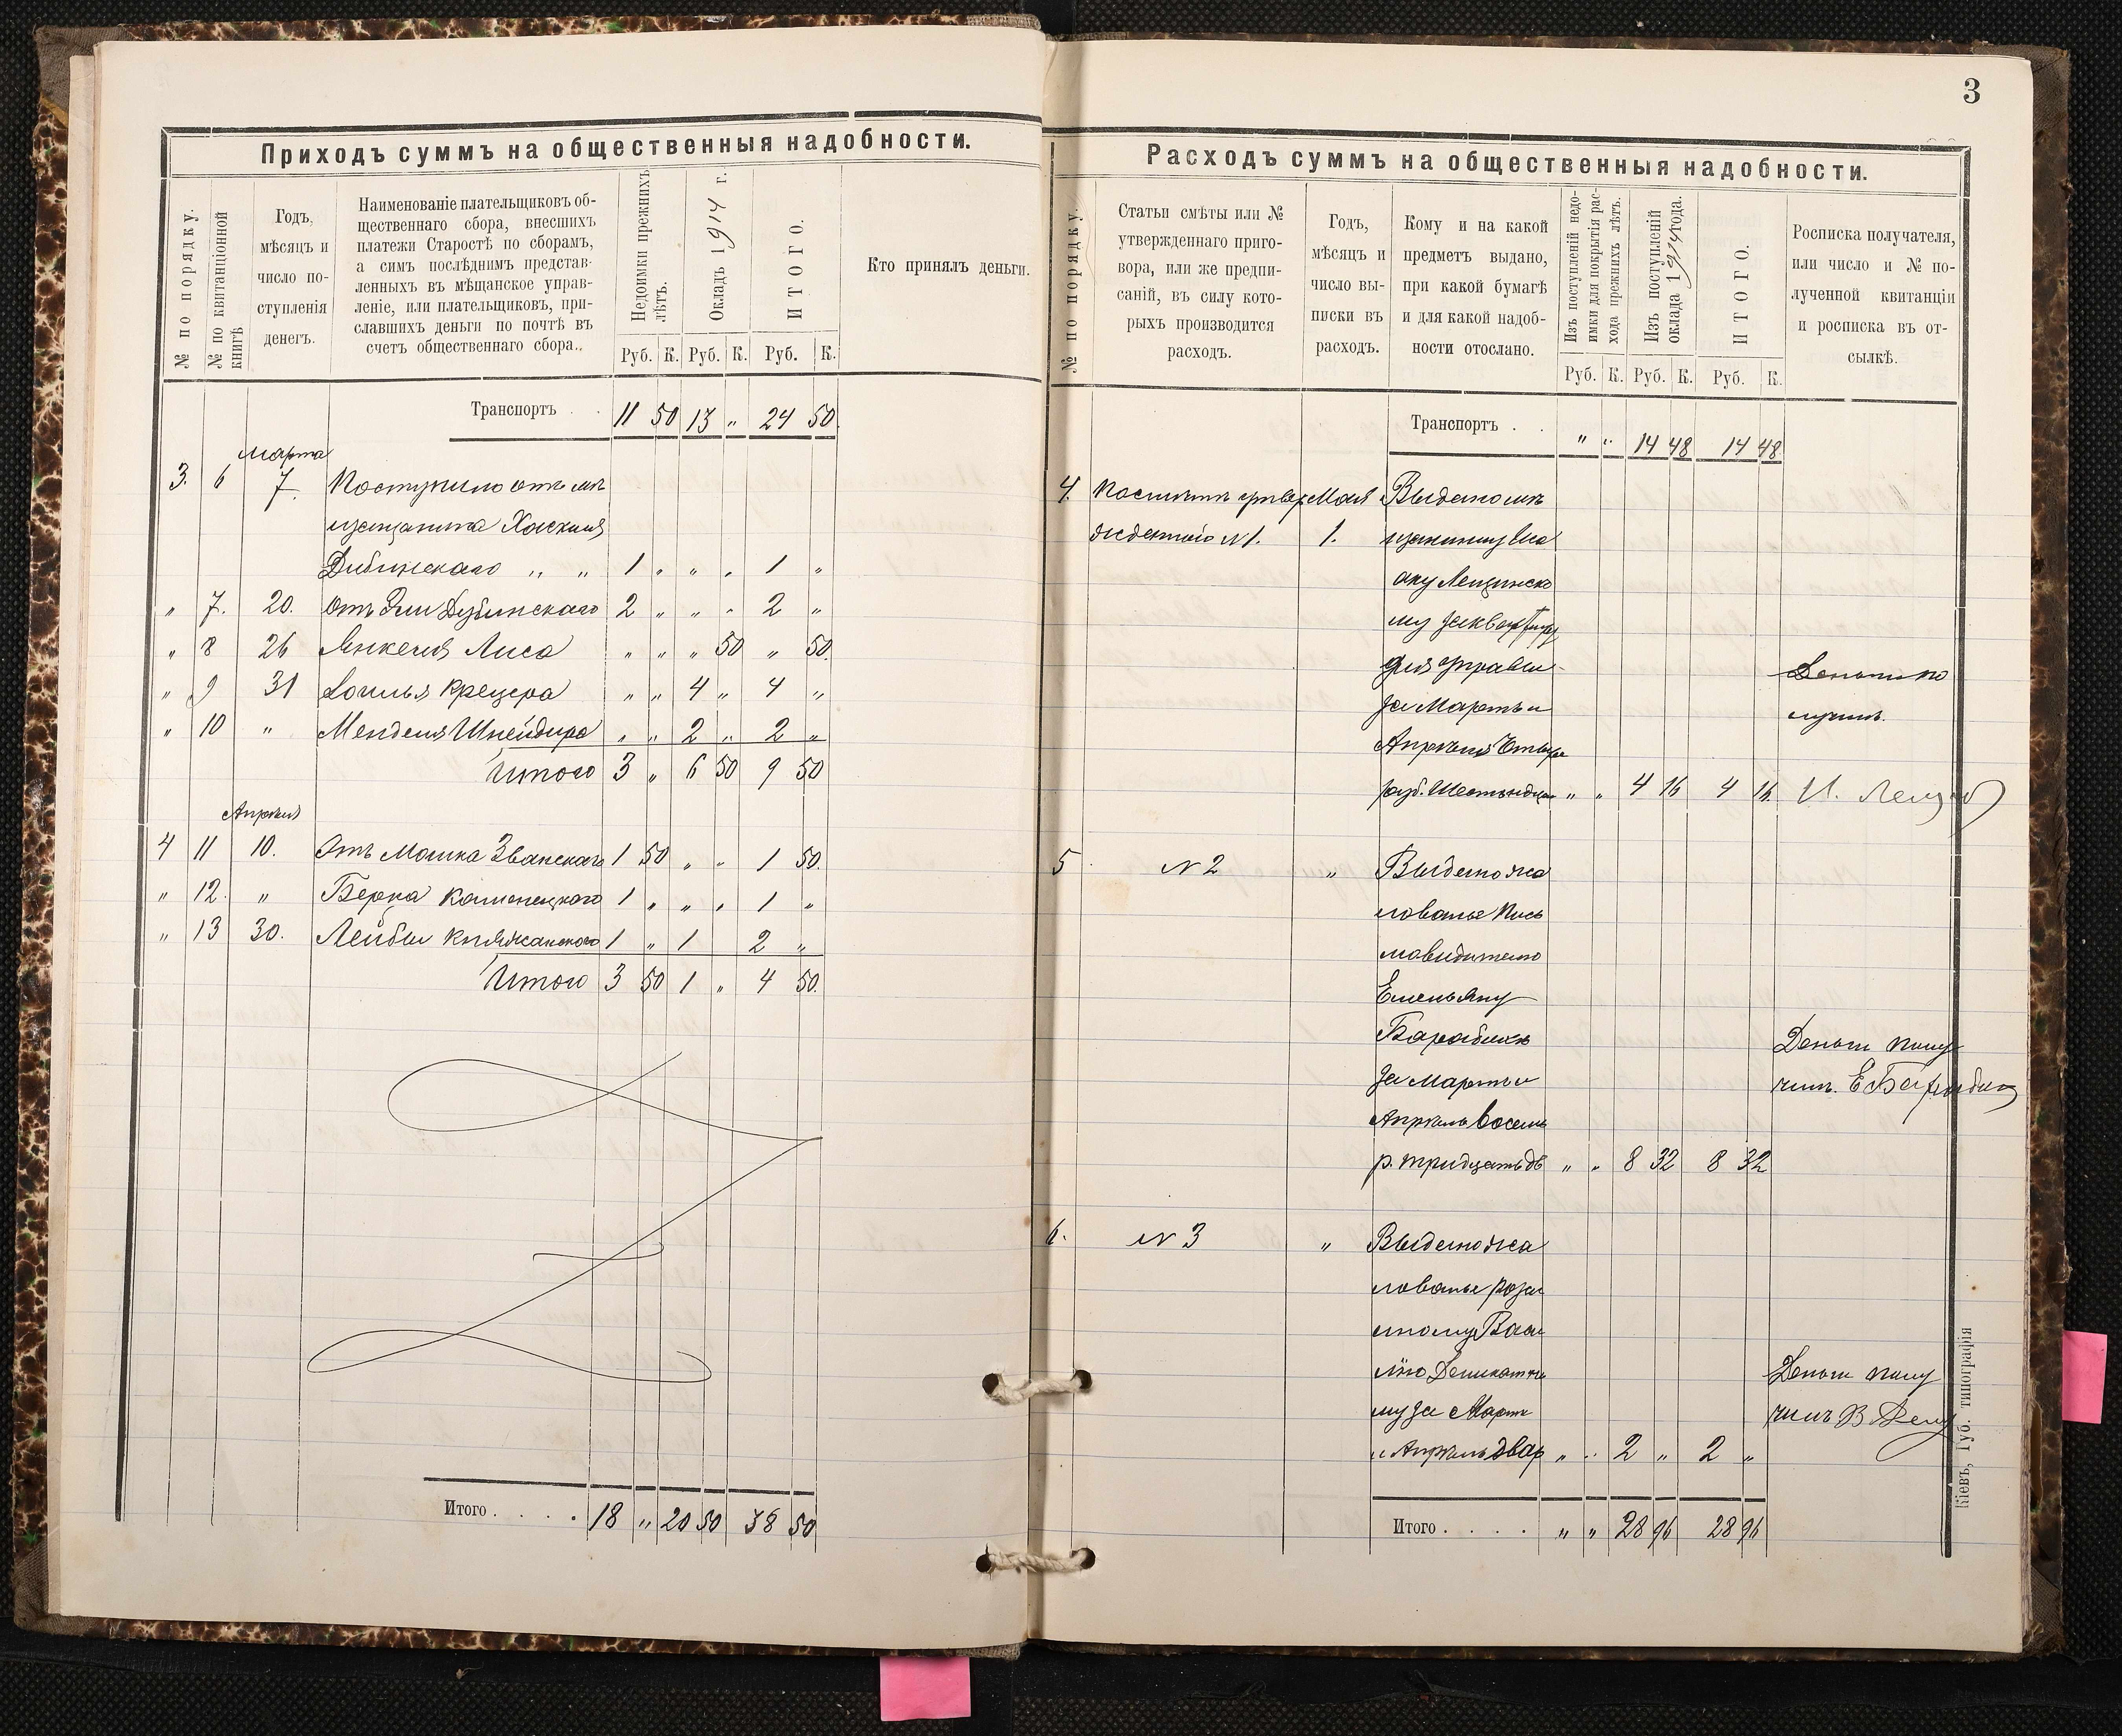 3
Приходъ суммъ на общественныя надобности.
№ по порядку.
№ по квитанціонной книгѣ
Годъ,
мѣсяцъ и
число по-
ступленія
денегъ.
Наименованіе плательщиковъ об-
щественнаго сбора, внесшихъ
платежи Старостѣ по сборамъ,
а симъ послѣднимъ представ-
ленныхъ въ мѣщанское управ-
леніе, или плательщиковъ, при-
славшихъ деньги по почтѣ въ
счетъ общественнаго сбора.
Недоимки прежнихъ лѣтъ.
Окладъ 1914 г.
ИТОГО.
Кто принялъ деньги.
Руб. К. Руб. К. Руб. К.
Транспортъ . . 11 50 13 „ 24 50
Марта
3. 6 7. Поступило отъ мѣ
щанина Хаскеля
Дубинскаго „ „ 1 „ „ „ 1 „
„ 7. 20. Отъ Эли Дубинскаго 2 „ „ „ 2 „
„ 8 26 Янкеля Лиса „ „ „ 50 „ 50.
„ 9 31 Крецера „ „ 4 „ 4 „
„ 10 „ Менделя Шнейдера „ „ 2 „ 2 „
Итого 3 „ 6 50 9 50
Апрѣля
4 11 10. Отъ Мошка Званскаго 1 50 „ „ 1 50.
„ 12. „ Берка Каменецкаго 1 „ „ „ 1 „
„ 13 30. Лейбы Княжанскаго 1 „ 1 2 „
Итого 3 50 1 „ 4 50.
Итого . . . . 18 „ 20 50 38 50
Расходъ суммъ на общественныя надобности.
№ по порядку.
Статьи смѣты или №
утвержденнаго приго-
вора, или же предпи-
саній, въ силу кото-
рыхъ производится
расходъ.
Годъ,
мѣсяцъ и
число вы-
писки въ
расходъ.
Кому и на какой
предметъ выдано,
при какой бумагѣ
и для какой надоб-
ности отослано.
Изъ поступленій недо-
имки для покрытія рас-
хода прежнихъ лѣтъ.
Изъ поступленій
оклада 1914 года.
ИТОГО.
Росписка получателя,
или число и № по-
лученной квитанціи
и росписка въ от-
сылкѣ.
Руб. К. Руб. К. Руб. К.
Транспортъ . . „ „ 14 48 14 48
4. По смѣтѣ утвер Мая Выдано мѣ
жденной №1. 1. щанину Иса
аку Лещинско
му за квартиру
для управы
за Мартъ и Деньги по
Апрѣль Четыре лучилъ.
руб. Шестнадца „ „ 4 16 4 16. И. Лещ
5 №2 „ Выдано жа
лованье Пись
моводителю
Емельяну
Барабашъ Деньги полу
за Мартъ и чилъ. Е
Апрѣль восемь
р. тридцать дв „ „ 8 32 8 32
6. №3 „ Выдано жа
лованье разсы
льному Васи
лію Деликатно Деньги полу
му за Мартъ чилъ В
и Апрѣль два р „ „ 2 „ 2 „
Итого . . . . „ „ 28 96 28 96
Кіевъ, Губ. типографія